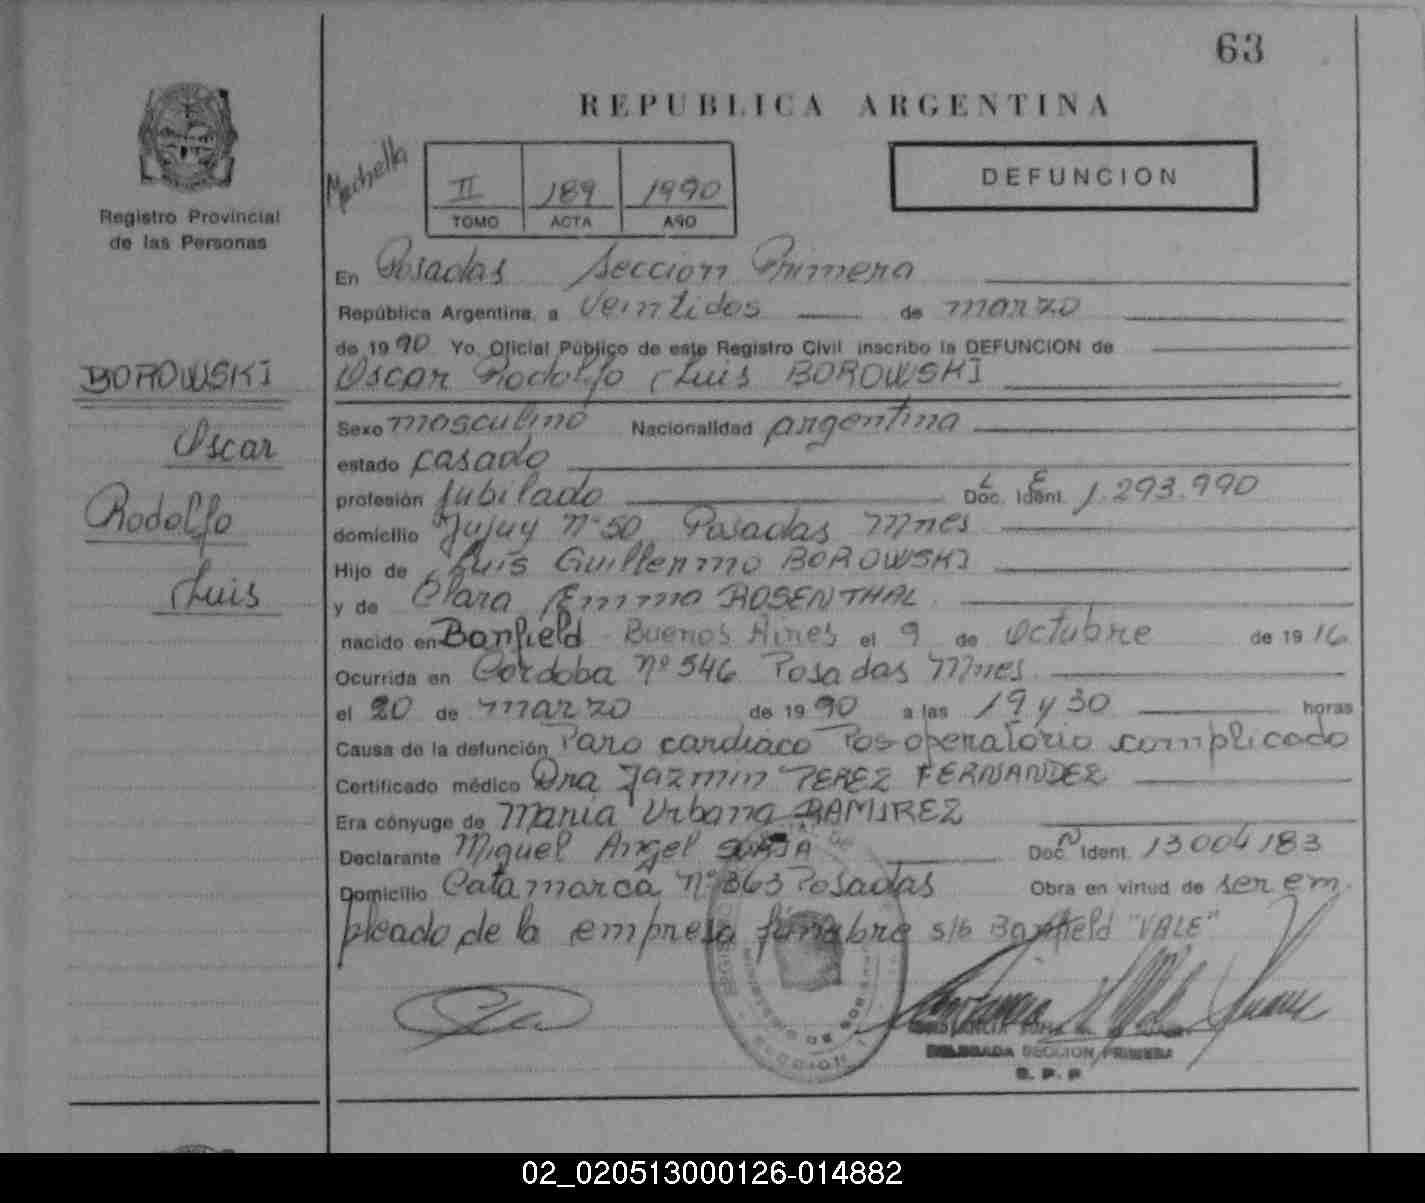 63
REPUBLICA ARGENTINA
Registro Provincial
de las Personas
II 189 1990
TOMO ACTA AÑO
DEFUNCION
En Posadas Seccion Primera
República Argentina, a veintidos de marzo
de 1990 Yo, Oficial Público de este Registro Civil inscribo la DEFUNCION de
Oscar Rodolfo Luis BOROWSKI
BOROWSKI
Oscar
Rodolfo
Luis
Sexo masculino Nacionalidad argentina
estado casado
profesión jubilado Doc. Ident. L E 1.293.990
domicilio Jujuy Nº 50 Posadas Mnes
Hijo de Luis Guillermo BOROWSKI
y de Clara Emma ROSENTHAL
nacido en Banfield - Buenos Aires el 9 de Octubre de 1916
Ocurrida en Cordoba Nº 546 Posadas Mnes.
el 20 de marzo de 1990 a las 19 y 30 horas
Causa de la defunción Paro cardiaco Posoperatorio complicado
Certificado médico Dra Jazmin PEREZ FERNANDEZ
Era cónyuge de Maria Urbana RAMIREZ
Declarante Miguel Angel Doc. Ident. 13004183
Domicilio Catamarca Nº 363 Posadas Obra en virtud de ser em
pleado de la empresa fúnebre s/b Banfield "VALE"
DELEGADA SECCION PRIMERA
R. P. P.
02_020513000126-014882